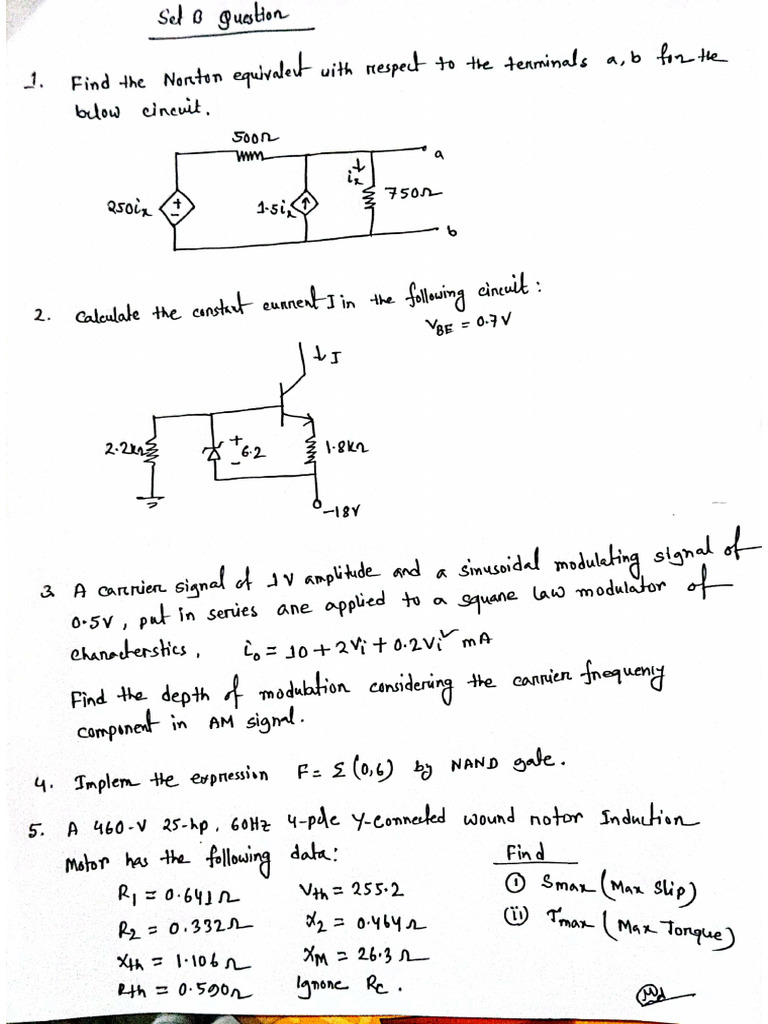 Set B Question
1. Find the Norton equivalent with respect to the terminals a, b for the
below circuit.
500Ω
a
250ix
+
-
1.5ix
ix
750Ω
b
2. Calculate the constant current I in the following circuit:
VBE = 0.7V
↓I
2.2kΩ
+
6.2
-
1.8kΩ
-18V
3. A carrier signal of 1V amplitude and a sinusoidal modulating signal of
0.5V, put in series are applied to a square law modulator of
characterstics, io = 10 + 2Vi + 0.2Vi² mA
Find the depth of modulation considering the carrier frequency
component in AM signal.
4. Implem the expression F = Σ(0,6) by NAND gate.
5. A 460-V 25-hp, 60Hz 4-pole Y-connected wound rotor Induction
Motor has the following data:
Find
R1 = 0.641Ω
Vth = 255.2
(i) Smax (Max Slip)
R2 = 0.332Ω
X2 = 0.464Ω
(ii) Tmax (Max Torque)
Xth = 1.106Ω
XM = 26.3Ω
Rth = 0.590Ω
Ignore Rc.